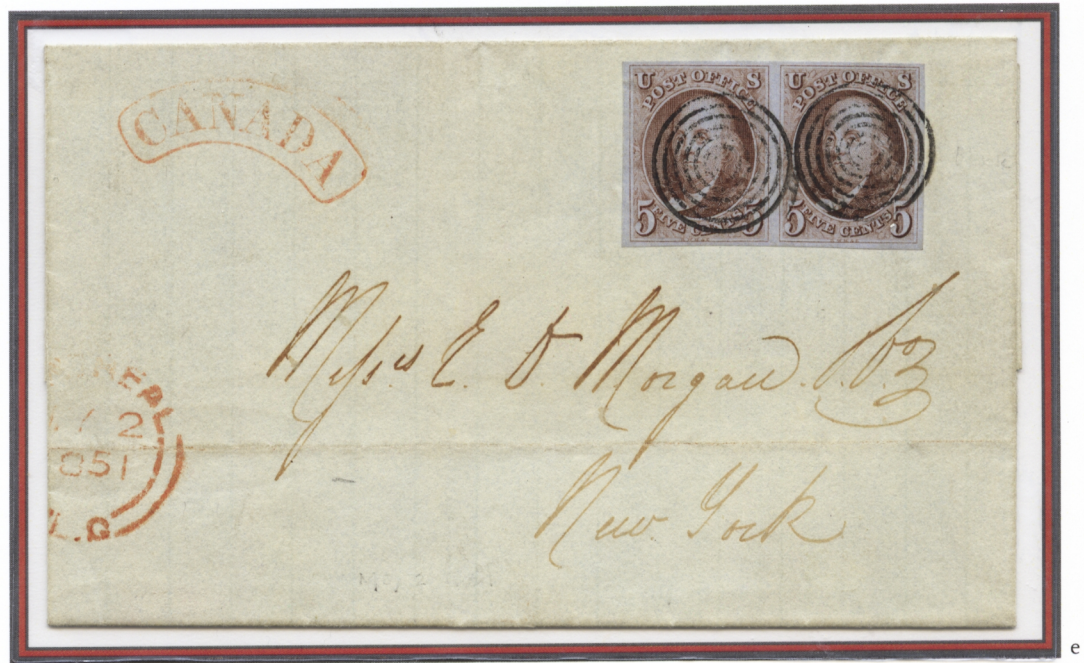 CANADA
U S
POST OFFICE
5 FIVE CENTS
U S
POST OFFICE
5 FIVE CENTS 5
Messrs E. D. Morgan & Co
New York
REAL
Y 2
851
L.C
e